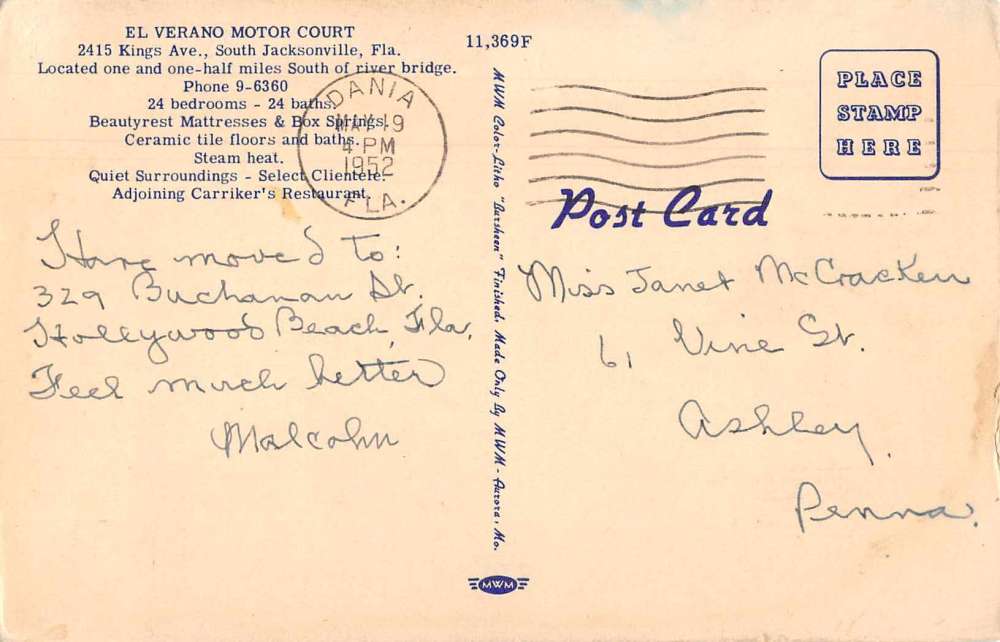 EL VERANO MOTOR COURT
2415 Kings Ave., South Jacksonville, Fla.
Located one and one-half miles South of river bridge.
Phone 9-6360
24 bedrooms - 24 baths.
Beautyrest Mattresses & Box Springs.
Ceramic tile floors and baths.
Steam heat.
Quiet Surroundings - Select Clientele.
Adjoining Carriker's Restaurant.
DANIA
MAY 19
4 PM
1952
FLA.
Have moved to:
329 Buchanan St.
Hollywood Beach, Fla.
Feel much better
Malcolm
11,369F
MWM Color-Litho "Dursheen" Finished. Made Only By MWM - Aurora, Mo.
MWM
PLACE
STAMP
HERE
Post Card
Miss Janet McCracken
61 Vine St.
Ashley,
Penna.